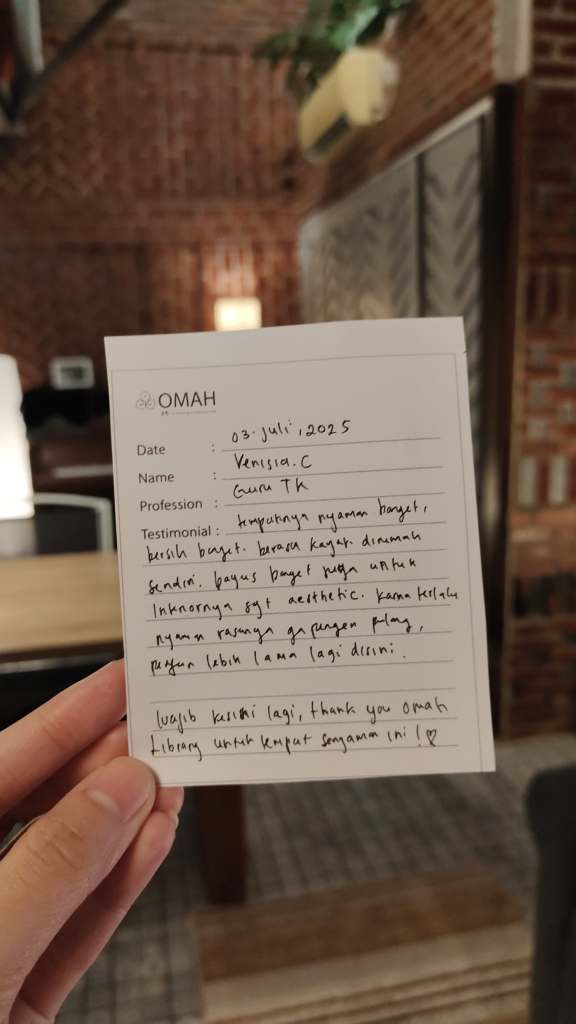 OMAH
Date : 03.juli, 2025
Name : Venisia.C
Profession : Guru TK
Testimonial : tempatnya nyaman banget,
bersih banget. berasa kayak dirumah
sendiri. bagus banget juga untuk
Inknornya sgt aesthetic. karna terlalu
nyaman rasanya ga pengen pulang,
pengen lebih lama lagi disini.
Wajib kesini lagi, thank you Omah
Library untuk tempat senyaman ini! ♡